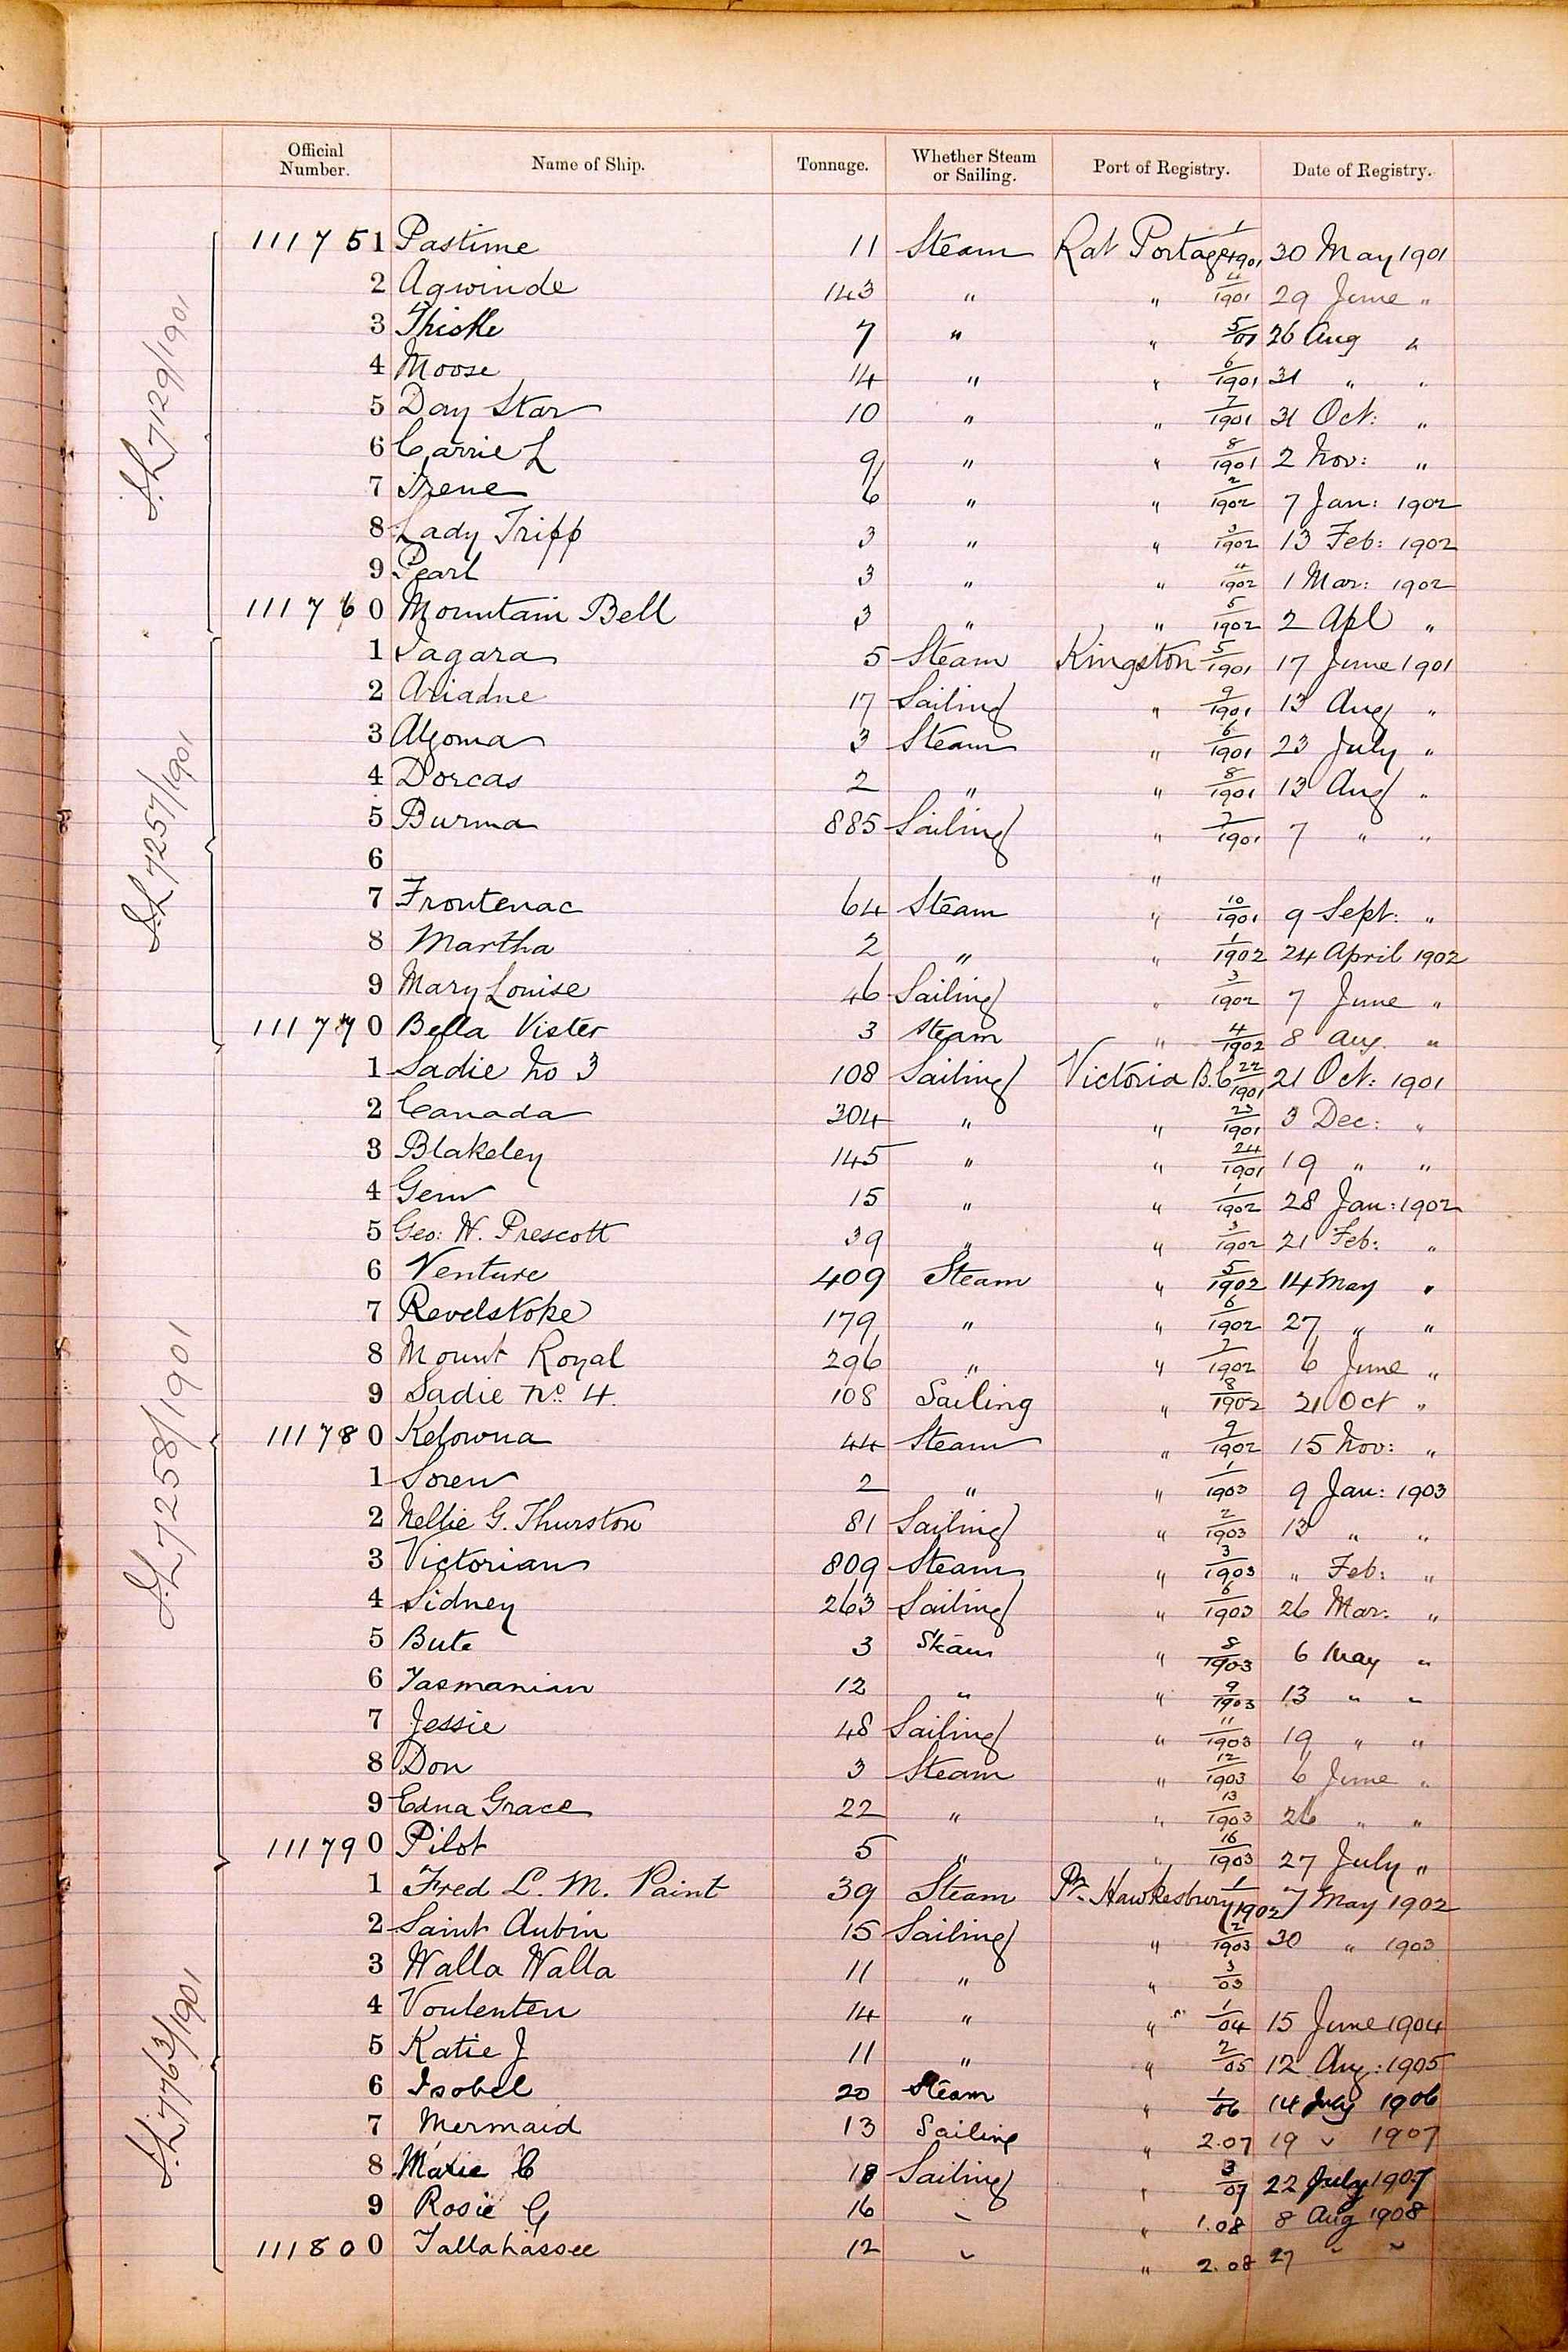 Official Number. Name of Ship. Tonnage. Whether Steam or Sailing. Port of Registry. Date of Registry.
S.L 7129/1901
111751 Pastime 11 Steam Rat Portage 1/1901 30 May 1901
2 Agwinde 143 " " 4/1901 29 June "
3 Thistle 7 " " 5/01 26 Aug "
4 Moose 14 " " 6/1901 31 " "
5 Day Star 10 " " 7/1901 31 Oct: "
6 Carrie L 9 " " 8/1901 2 Nov: "
7 Irene 6 " " 2/1902 7 Jan: 1902
8 Lady Tripp 3 " " 3/1902 13 Feb: 1902
9 Pearl 3 " " 4/1902 1 Mar: 1902
111760 Mountain Bell 3 " " 5/1902 2 Apl "
S.L 7257/1901
1 Jagara 5 Steam Kingston 5/1901 17 June 1901
2 Ariadne 17 Sailing " 9/1901 13 Aug "
3 Algoma 3 Steam " 6/1901 23 July "
4 Dorcas 2 " " 8/1901 13 Aug "
5 Burma 885 Sailing " 7/1901 7 " "
6 "
7 Frontenac 64 Steam " 10/1901 9 Sept: "
8 Martha 2 " " 1/1902 24 April 1902
9 Mary Louise 46 Sailing " 3/1902 7 June "
111770 Bella Vister 3 Steam " 4/1902 8 Aug. "
S.L 7258/1901
1 Sadie No 3 108 Sailing Victoria B.C 22/1901 21 Oct: 1901
2 Canada 304 " " 23/1901 3 Dec: "
3 Blakeley 145 " " 24/1901 19 " "
4 Gem 15 " " 1/1902 28 Jan: 1902
5 Geo: W. Prescott 39 " " 3/1902 21 Feb: "
6 Venture 409 Steam " 5/1902 14 May "
7 Revelstoke 179 " " 6/1902 27 " "
8 Mount Royal 296 " " 7/1902 6 June "
9 Sadie No. 4. 108 Sailing " 8/1902 21 Oct "
111780 Kelowna 44 Steam " 9/1902 15 Nov: "
1 Soren 2 " " 1/1903 9 Jan: 1903
2 Nellie G. Thurston 81 Sailing " 2/1903 13 " "
3 Victorian 809 Steam " 3/1903 " Feb: "
4 Sidney 263 Sailing " 6/1903 26 Mar: "
5 Bute 3 Steam " 8/1903 6 May "
6 Tasmanian 12 " " 9/1903 13 " "
7 Jessie 48 Sailing " 11/1903 19 " "
8 Don 3 Steam " 12/1903 6 June "
9 Edna Grace 22 " " 13/1903 26 " "
111790 Pilot 5 " " 16/1903 27 July "
S.L 7763/1901
1 Fred L. M. Paint 39 Steam Pt. Hawkesbury 1/1902 7 May 1902
2 Saint Aubin 15 Sailing " 2/1903 30 " 1903
3 Walla Walla 11 " " 3/03
4 Voulenten 14 " " 1/04 15 June 1904
5 Katie J 11 " " 2/05 12 Aug: 1905
6 Isobel 20 Steam " 1/06 14 July 1906
7 Mermaid 13 Sailing " 2.07 19 " 1907
8 Marie C 18 Sailing " 3/07 22 July 1907
9 Rosie G 16 " " 1.08 8 Aug 1908
111800 Tallahassee 12 " " 2.08 27 " "